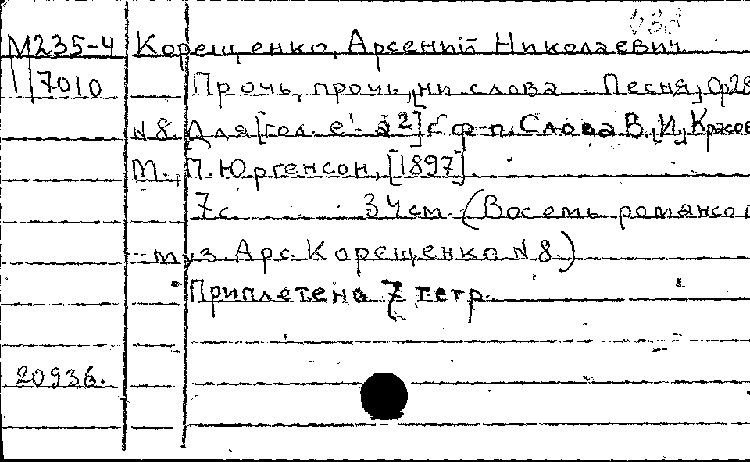 038
М235-4 Корещенко, Арсений Николаевич
1/7010 Прочь, прочь, ни слова. Песня, Op 28
N 8. Для [гол. e'- a²] с ф-п. Слова В. [И.] Красов
М., П. Юргенсон, [1897].
7 с. 34 см. (Восемь романсов
муз. Арс. Корещенко N 8)
Приплетена 7 тетр.
20936.